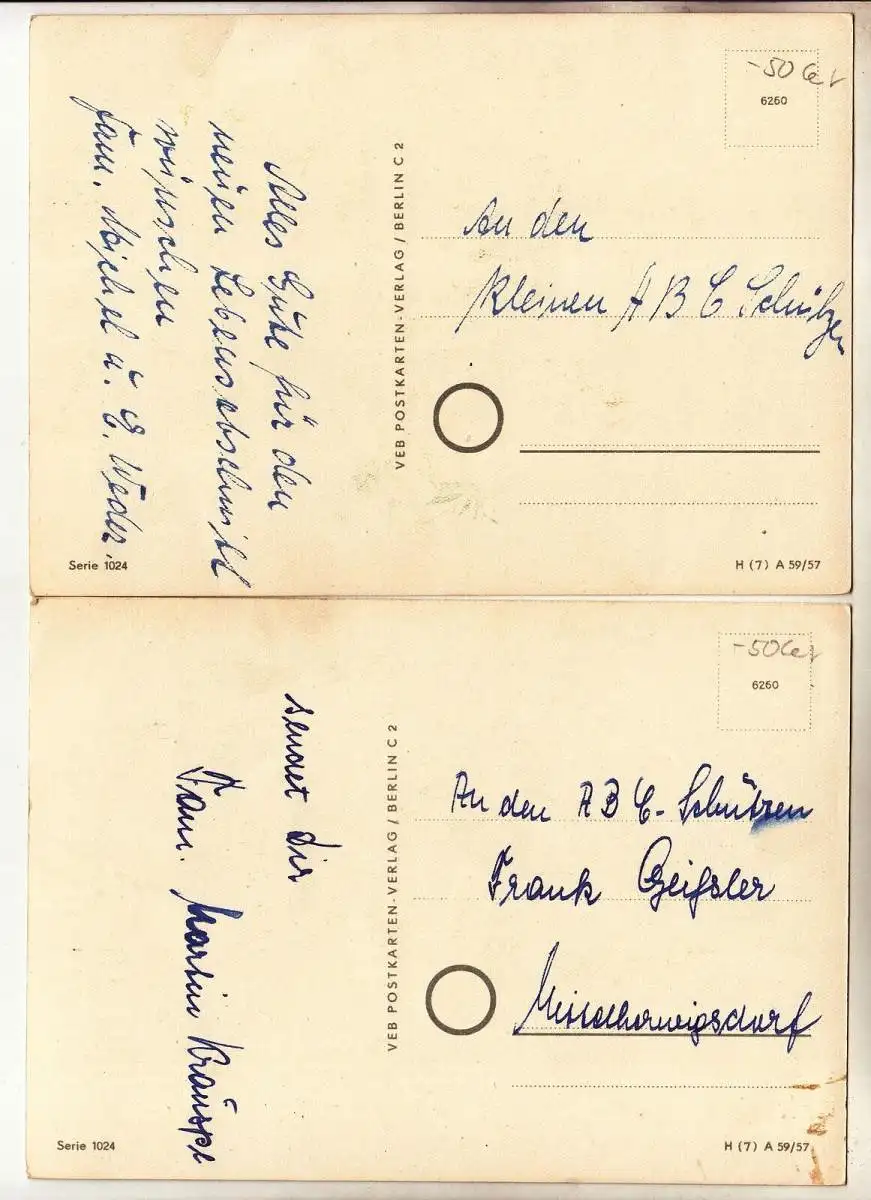 Alles Gute für den
neuen Lebensabschnitt
wünschen
Fam. u. G. Weder.
VEB POSTKARTEN-VERLAG / BERLIN C 2
-50
6260
An den
kleinen A B C Schützen
Serie 1024
H (7) A 59/57
sendet dir
Fam. Martin Krauspe
VEB POSTKARTEN-VERLAG / BERLIN C 2
-50
6260
An den A B C-Schützen
Frank Geißler
Mittelherwigsdorf
Serie 1024
H (7) A 59/57